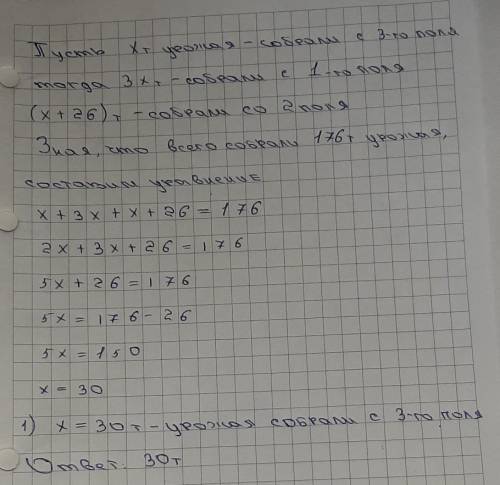 Пусть x т урожая - собрали с 3-го поля
тогда 3x т - собрали с 1-го поля
(x + 26) т - собрали со 2 поля
Зная, что всего собрали 176 т урожая,
составим уравнение
x + 3x + x + 26 = 176
2x + 3x + 26 = 176
5x + 26 = 176
5x = 176 - 26
5x = 150
x = 30
1) x = 30 т - урожая собрали с 3-го поля
Ответ: 30 т